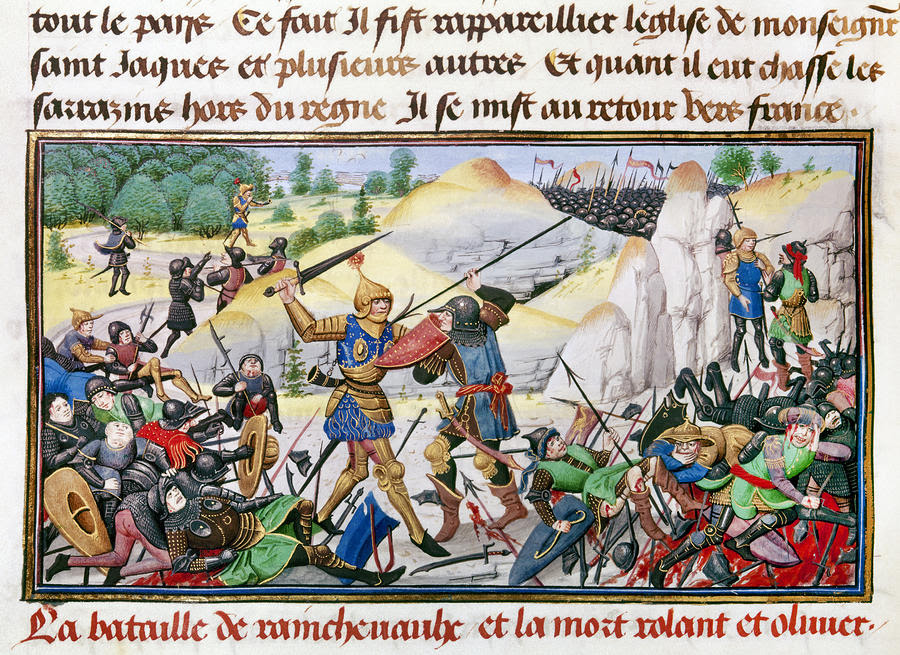 tout le pays Ce fait Il fist rappareillier leglise de monseignr
saint Jaques et plusieurs autres Et quant il eut chasse les
sarrazins hors du regne Il se mist au retour vers france.
La bataille de rainchevaulx et la mort rolant et oliuier.